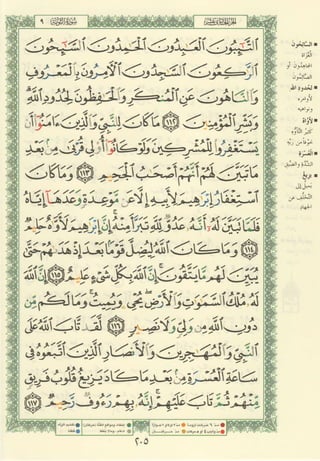 سُورَةُ التَّوْبَةِ ٩ الجُزْءُ الحَادِي عَشَرَ
ٱلتَّٰٓئِبُونَ ٱلْعَٰبِدُونَ ٱلْحَٰمِدُونَ ٱلسَّٰٓئِحُونَ
ٱلرَّٰكِعُونَ ٱلسَّٰجِدُونَ ٱلْءَامِرُونَ بِٱلْمَعْرُوفِ
وَٱلنَّاهُونَ عَنِ ٱلْمُنكَرِ وَٱلْحَٰفِظُونَ لِحُدُودِ ٱللَّهِ
وَبَشِّرِ ٱلْمُؤْمِنِينَ ١١٢ مَا كَانَ لِلنَّبِيِّ وَٱلَّذِينَ ءَامَنُوٓا۟ أَن
يَسْتَغْفِرُوا۟ لِلْمُشْرِكِينَ وَلَوْ كَانُوٓا۟ أُو۟لِى قُرْبَىٰ مِنۢ بَعْدِ
مَا تَبَيَّنَ لَهُمْ أَنَّهُمْ أَصْحَٰبُ ٱلْجَحِيمِ ١١٣ وَمَا كَانَ
ٱسْتِغْفَارُ إِبْرَٰهِيمَ لِأَبِيهِ إِلَّا عَن مَّوْعِدَةٍ وَعَدَهَآ إِيَّاهُ
فَلَمَّا تَبَيَّنَ لَهُۥٓ أَنَّهُۥ عَدُوٌّ لِّلَّهِ تَبَرَّأَ مِنْهُ ۚ إِنَّ إِبْرَٰهِيمَ لَأَوَّٰهٌ حَلِيمٌ
١١٤ وَمَا كَانَ ٱللَّهُ لِيُضِلَّ قَوْمًۢا بَعْدَ إِذْ هَدَىٰهُمْ حَتَّىٰ
يُبَيِّنَ لَهُم مَّا يَتَّقُونَ ۚ إِنَّ ٱللَّهَ بِكُلِّ شَىْءٍ عَلِيمٌ ١١٥ إِنَّ ٱللَّهَ
لَهُۥ مُلْكُ ٱلسَّمَٰوَٰتِ وَٱلْأَرْضِ ۖ يُحْىِۦ وَيُمِيتُ ۚ وَمَا لَكُم مِّن
دُونِ ٱللَّهِ مِن وَلِىٍّ وَلَا نَصِيرٍ ١١٦ لَّقَد تَّابَ ٱللَّهُ عَلَى
ٱلنَّبِىِّ وَٱلْمُهَٰجِرِينَ وَٱلْأَنصَارِ ٱلَّذِينَ ٱتَّبَعُوهُ فِى
سَاعَةِ ٱلْعُسْرَةِ مِنۢ بَعْدِ مَا كَادَ يَزِيغُ قُلُوبُ فَرِيقٍ
مِّنْهُمْ ثُمَّ تَابَ عَلَيْهِمْ ۚ إِنَّهُۥ بِهِمْ رَءُوفٌ رَّحِيمٌ ١١٧
٢٠٥
السَّائِحُونَ
لِحُدُودِ اللهِ
لَأَوَّاهٌ
الْعُسْرَةِ
يَزِيغُ